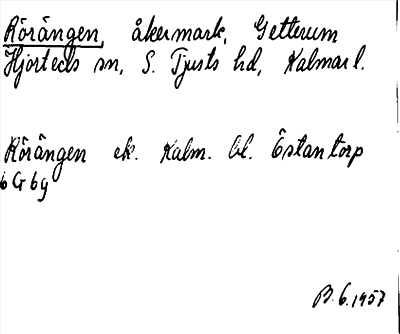 Rörängen, åkermark, Getterum
Hjorteds sn, S. Tjusts hd, Kalmar l.
Rörängen ek. Kalm. bl. Östantorp
6 G 6g
B. 6. 1957